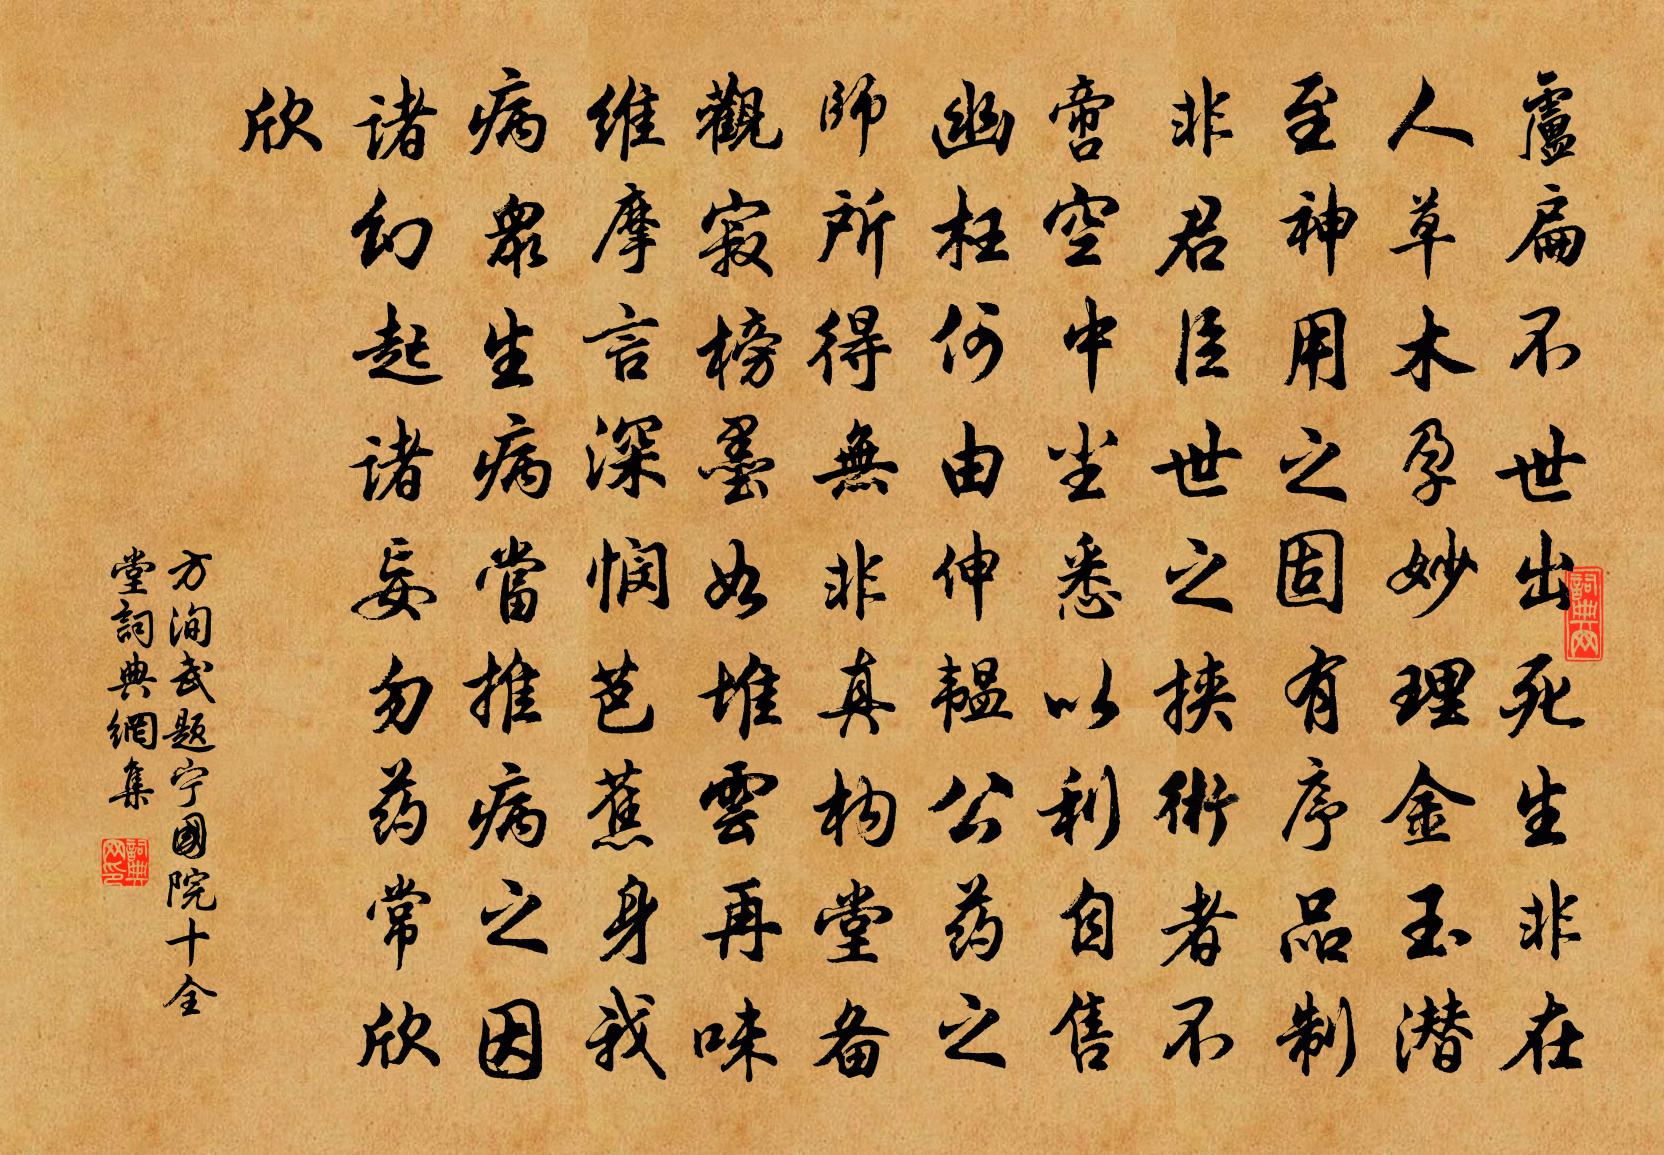 盧扁不世出死生非在
人草木孕妙理金玉潜
至神用之固有序品制
非君臣世之挾術者不
啻空中坐悉以利自售
幽枉何由伸韞公药之
師所得無非真构堂备
觀寂榜墨如堆雲再味
維摩言深悯芭蕉身我
病衆生病當推病之因
诸幻起诸妄勿药常欣
欣
方洵武题宁國院十全
堂詞典網集
詞典网
詞典网印